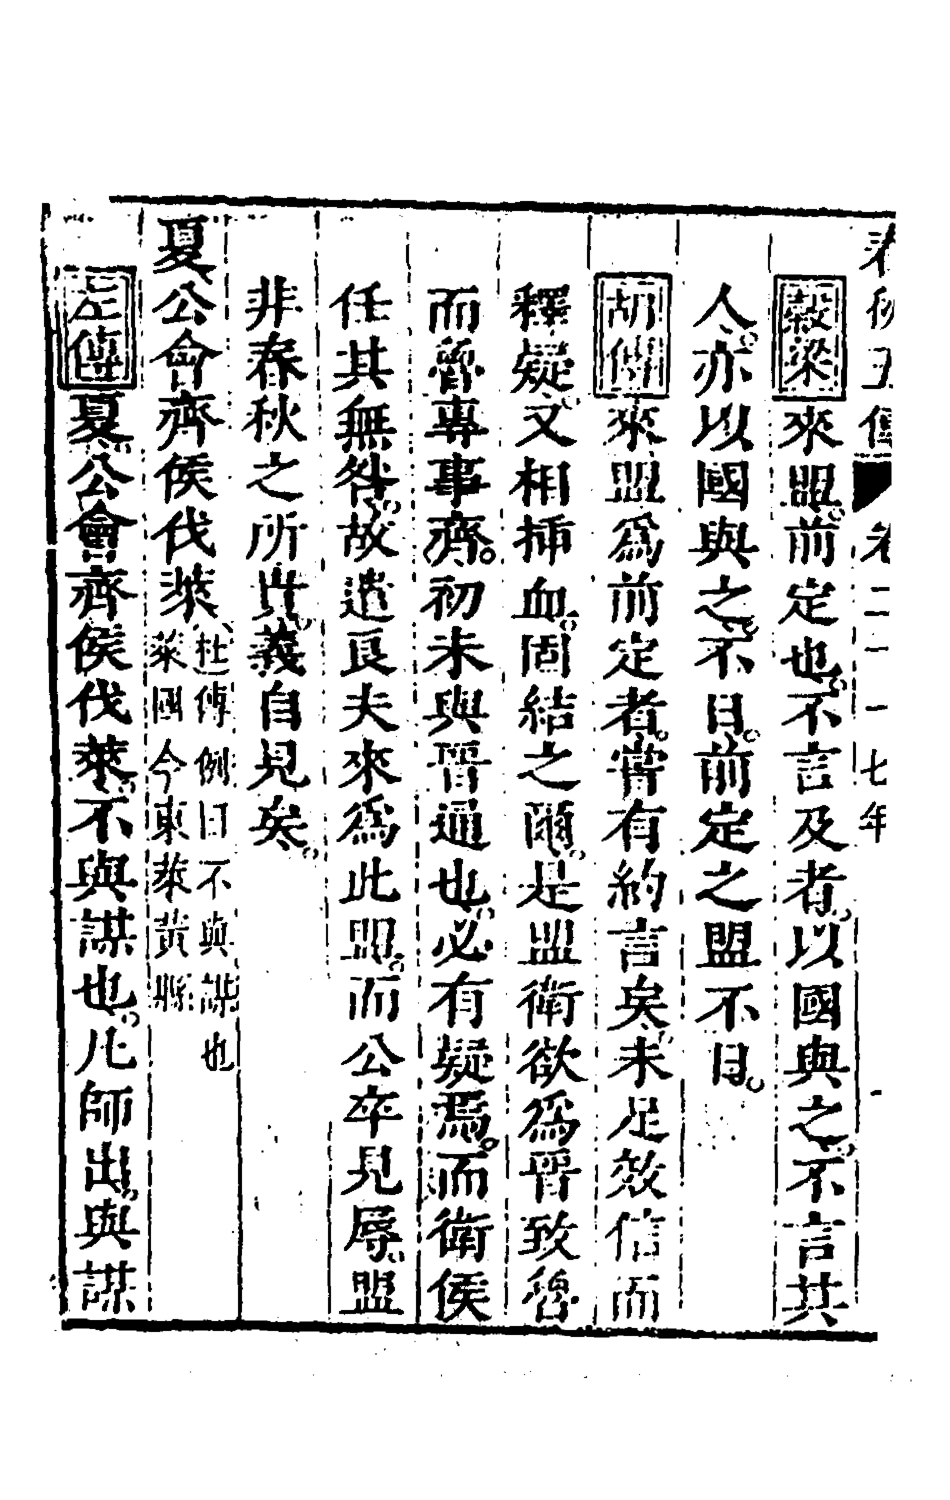 春秋五傳 卷二十一 七年
穀梁來盟前定也不言及者以國與之不言其
人亦以國與之不日前定之盟不日
胡傳來盟爲前定者嘗有約言矣未足效信而
釋疑又相揷血固結之爾是盟衛欲爲晉致魯
而魯專事齊初未與晉通也必有疑焉而衛侯
任其無咎故遣良夫來爲此盟而公卒見辱盟
非春秋之所貴義自見矣
夏公會齊侯伐萊杜傳例曰不與謀也
萊國今東萊黃縣
左傳夏公會齊侯伐萊不與謀也凡師出與謀